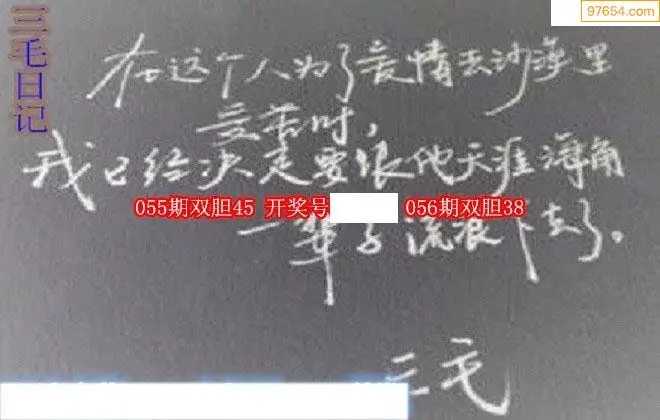 97654.com
三毛日记
在这个人为了爱情去沙漠里
受苦时，
我已经决定要跟他天涯海角
055期双胆45 开奖号 056期双胆38
一辈子流浪下去了。
三毛